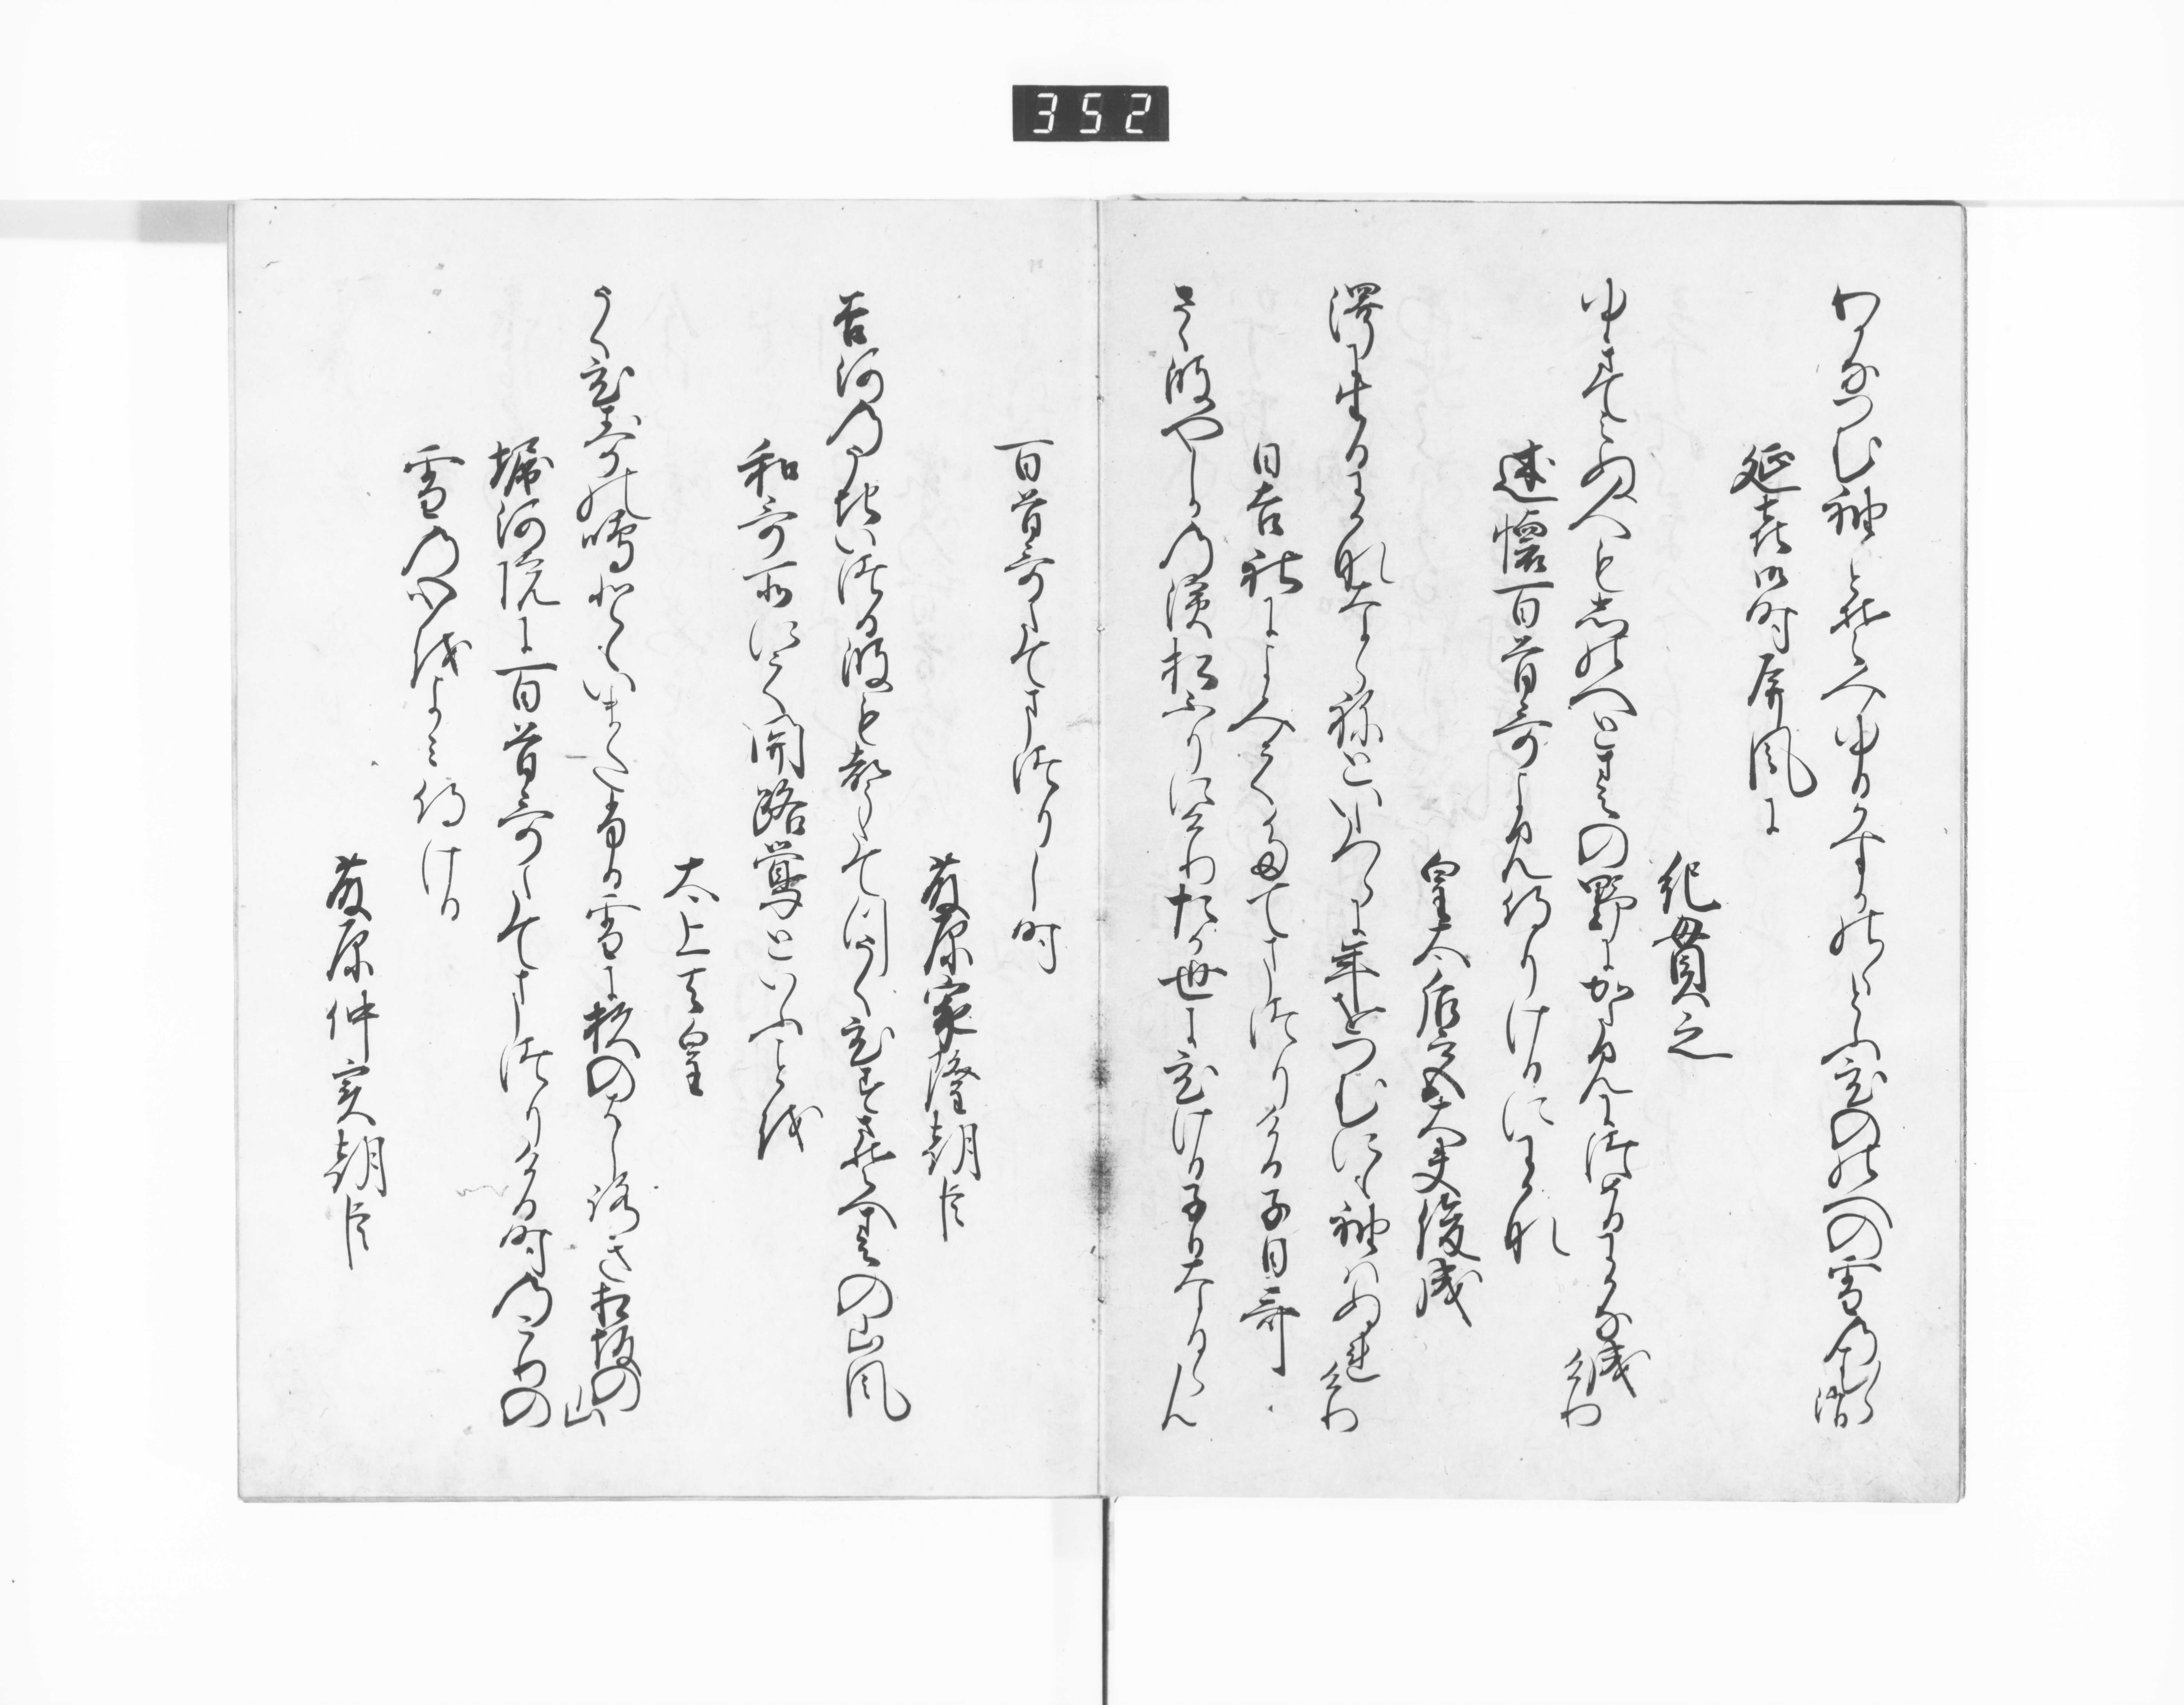 352
わかなつむ袖とそ見ゆるかすかのゝとふひのゝへの雪のむら消
延喜御時屏風に
紀貫之
ゆきて見ぬ人も忍へとはるの野にかたみにつめるわかな成けり
述懐百首哥よみ侍りけるにわかな
皇太后宮大夫俊成
澤に生るわかなならねといたつらに年をつむにも袖はぬれけり
日吉社によみてたてまつりける子日哥
さゝ波やしかの濱松ふりにけりたか世にひける子日なるらん
百首哥たてまつりし時
藤原家隆朝臣
谷河のうち出る波も声たてつ鴬さそへはるの山風
和哥所にて関路鴬といふことを
太上天皇
うくひすの鳴けともいまたふる雪に杦の葉しろき相坂の山
堀河院に百首哥たてまつりける時のこりの
雪の心をよみ侍ける
藤原仲実朝臣